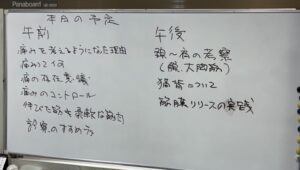 Panaboard
本日の予定
午前
痛みを考えるようになった理由
痛みとは何
痛の存在意義
痛みのコントロール
伸びた筋を柔軟な筋肉
診察のすすめ方
午後
頚〜肩の考察
(腕、大胸筋)
猫背について
筋膜リリースの実践